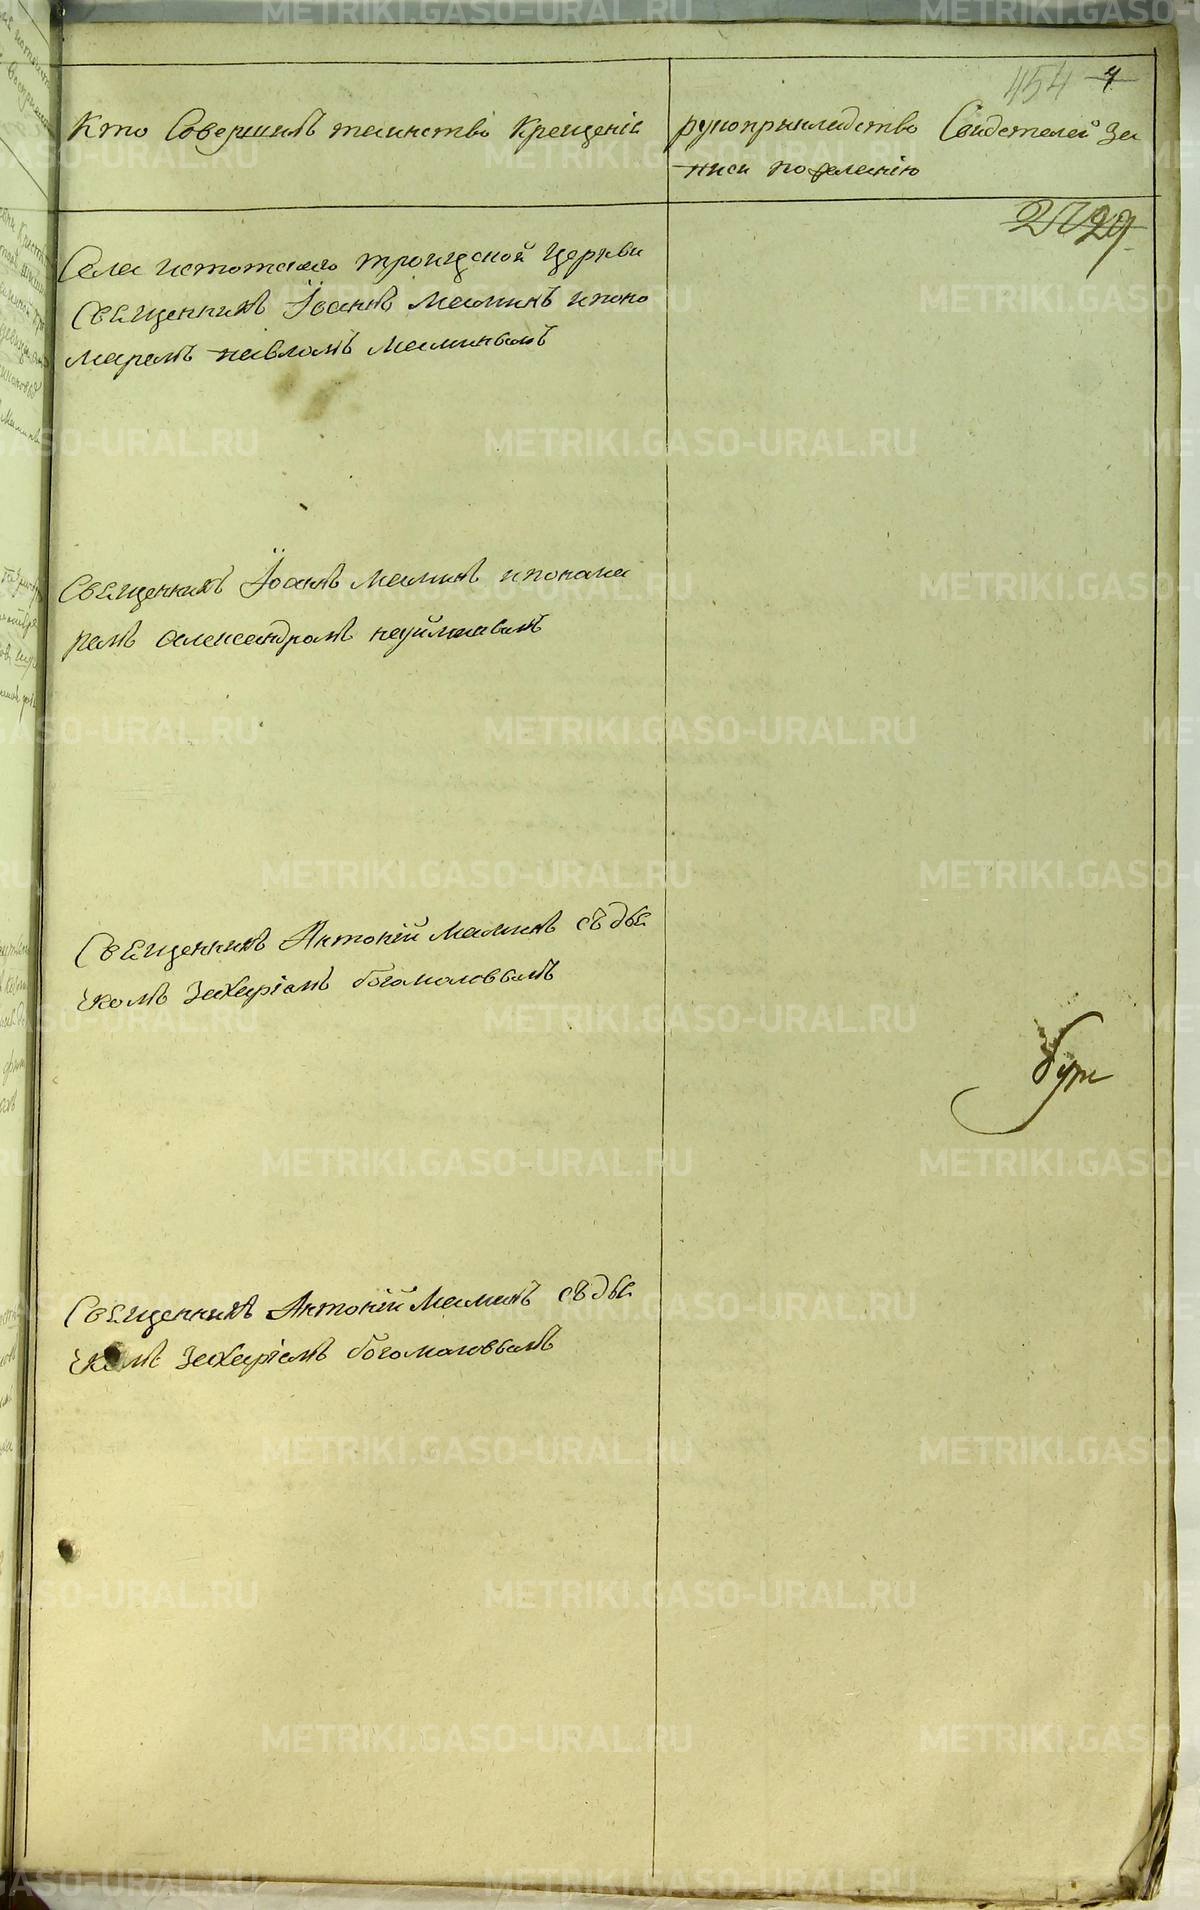 454 4
Кто Совершилъ таинство Крещенія
рукоприкладство Свидетелей За
писи по желанію
29
Села истотскаго троицской церкви
Священникъ Іоаннъ Маминъ и поно
маремъ павломъ Маминымъ
Священникъ Іоаннъ Маминъ и понома
ремъ александромъ
Священникъ Антоній Маминъ съ дьяч
комъ Захаріемъ богомоловымъ
Священникъ Антоній Маминъ съ дьяч
комъ Захаріемъ богомоловымъ
METRIKI.GASO-URAL.RU